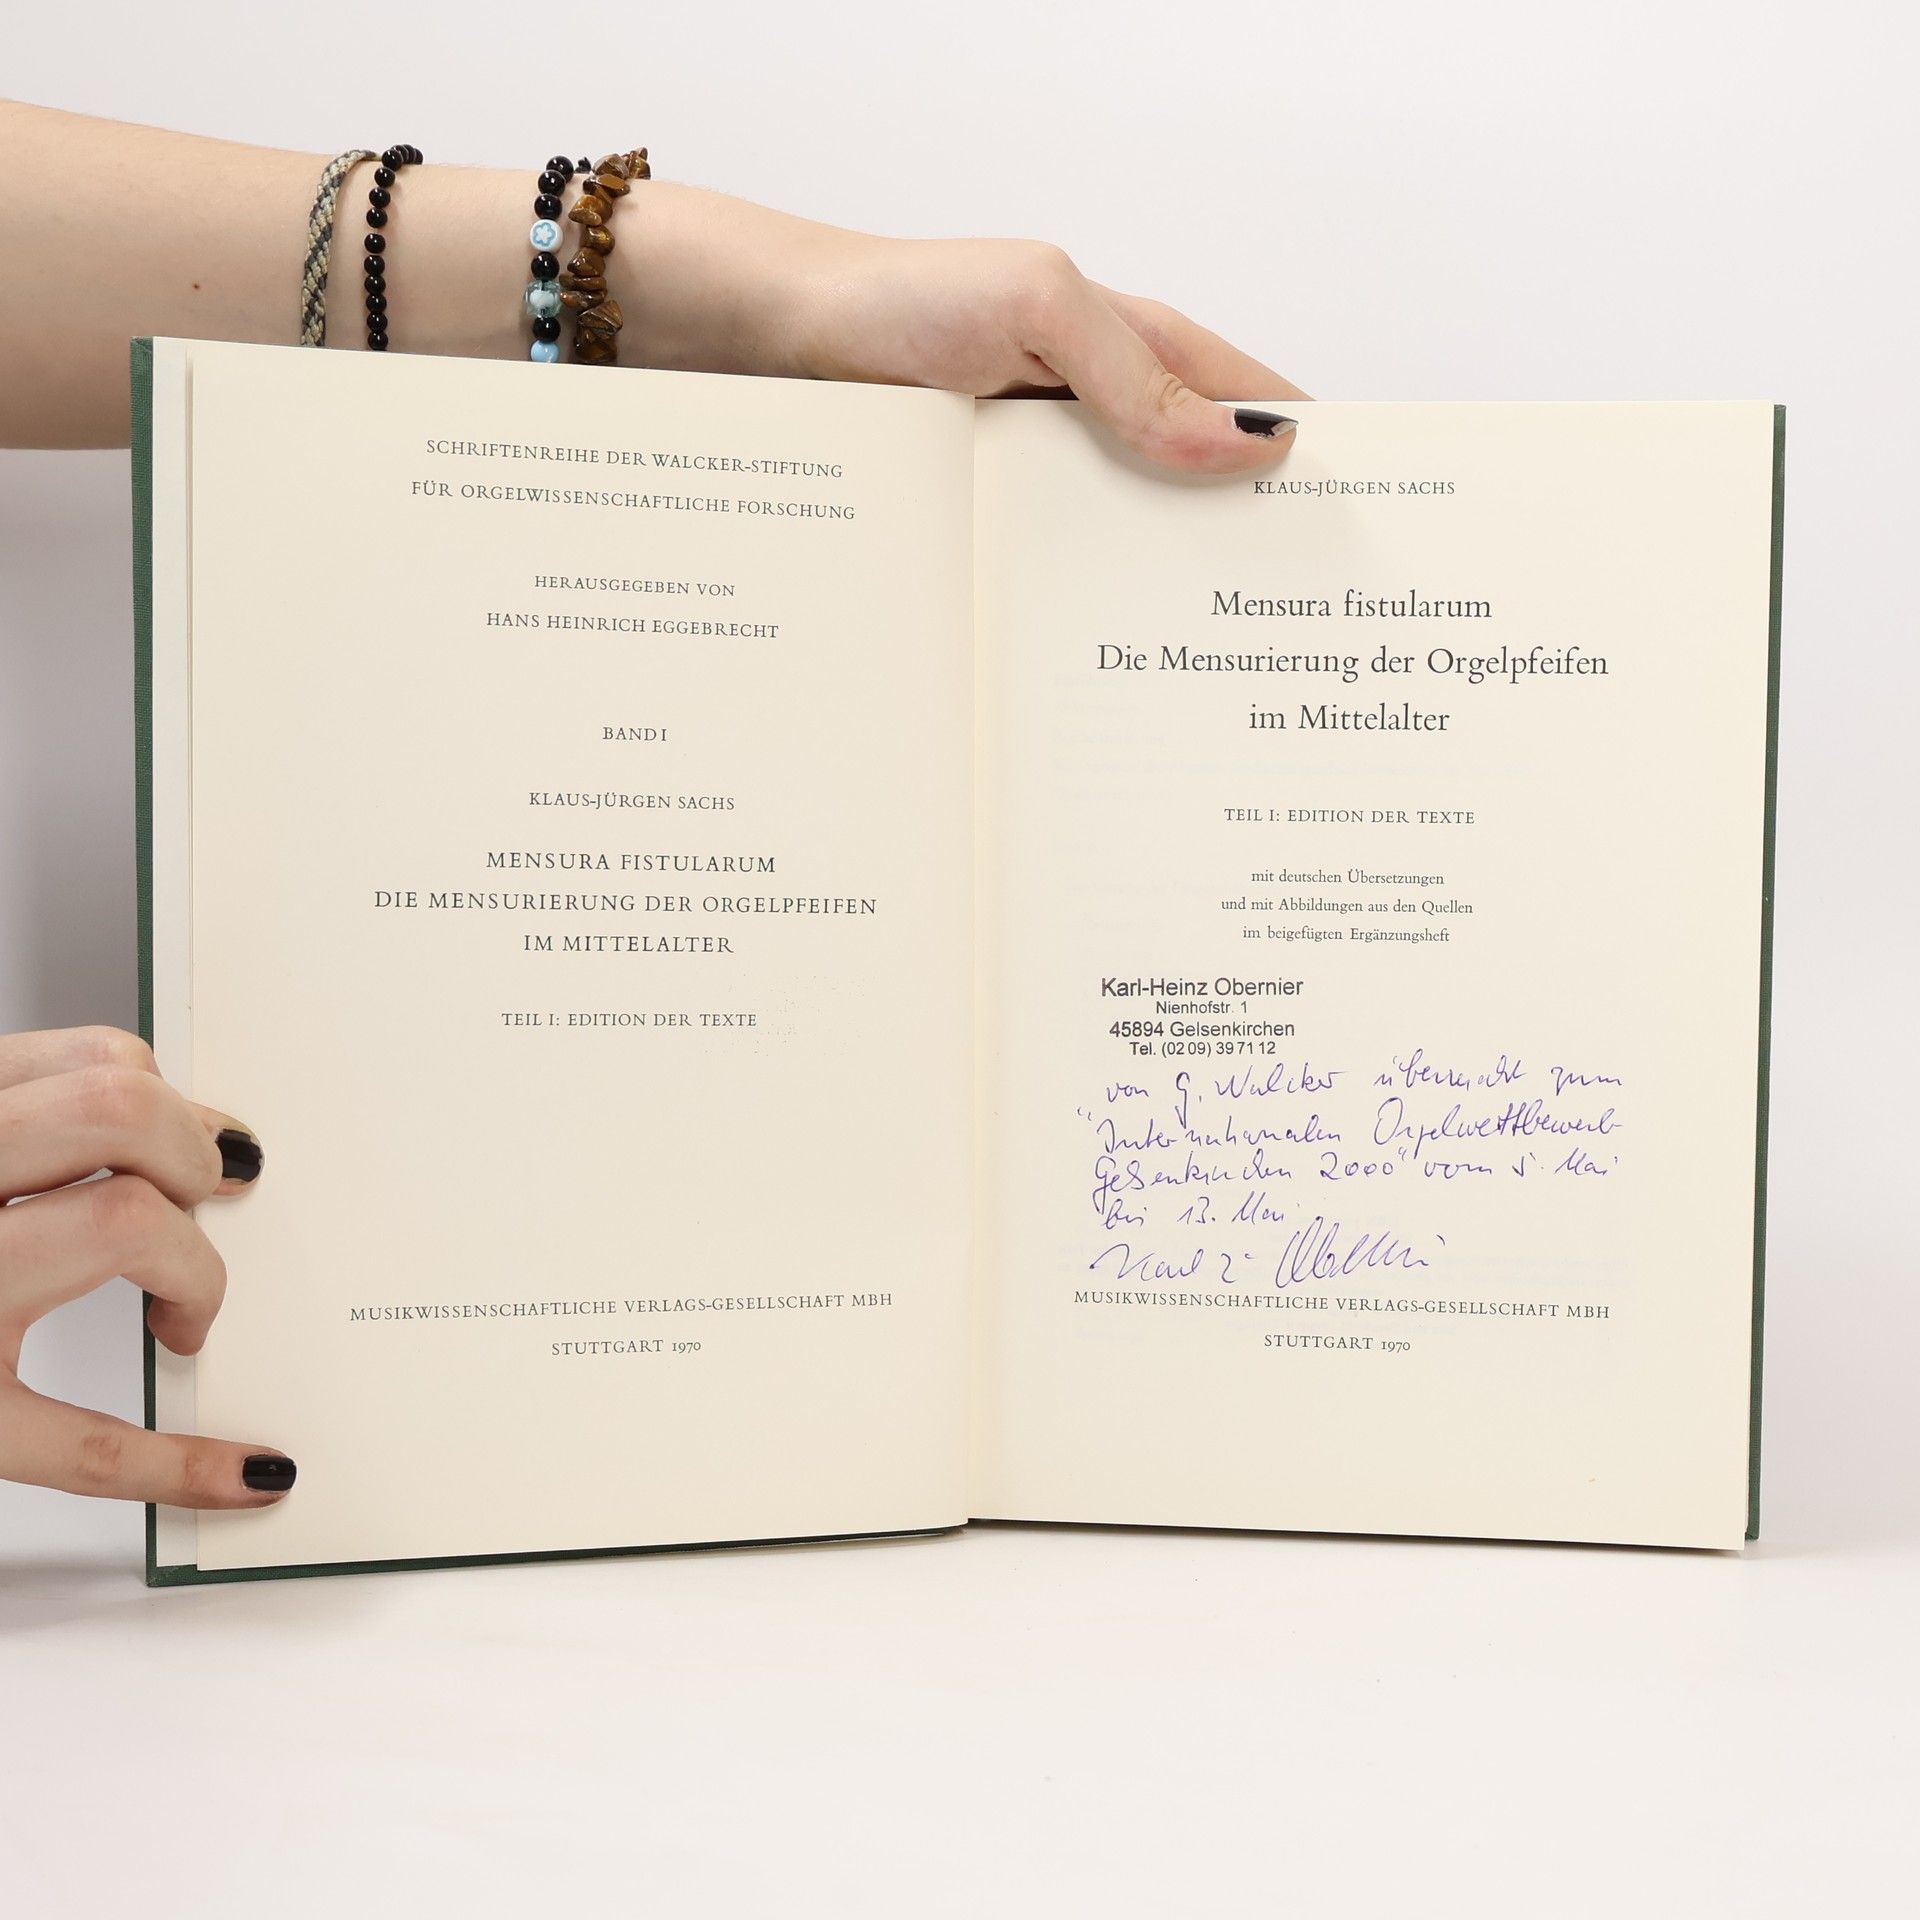 SCHRIFTENREIHE DER WALCKER-STIFTUNG
FÜR ORGELWISSENSCHAFTLICHE FORSCHUNG
HERAUSGEGEBEN VON
HANS HEINRICH EGGEBRECHT
BAND I
KLAUS-JÜRGEN SACHS
MENSURA FISTULARUM
DIE MENSURIERUNG DER ORGELPFEIFEN
IM MITTELALTER
TEIL I: EDITION DER TEXTE
MUSIKWISSENSCHAFTLICHE VERLAGS-GESELLSCHAFT MBH
STUTTGART 1970
KLAUS-JÜRGEN SACHS
Mensura fistularum
Die Mensurierung der Orgelpfeifen
im Mittelalter
TEIL I: EDITION DER TEXTE
mit deutschen Übersetzungen
und mit Abbildungen aus den Quellen
im beigefügten Ergänzungsheft
Karl-Heinz Obernier
Nienhofstr. 1
45894 Gelsenkirchen
Tel. (02 09) 39 71 12
von G. Walcker überreicht zum
"Internationalen Orgelwettbewerb
Gelsenkirchen 2000" vom 5. Mai
bis 13. Mai
MUSIKWISSENSCHAFTLICHE VERLAGS-GESELLSCHAFT MBH
STUTTGART 1970